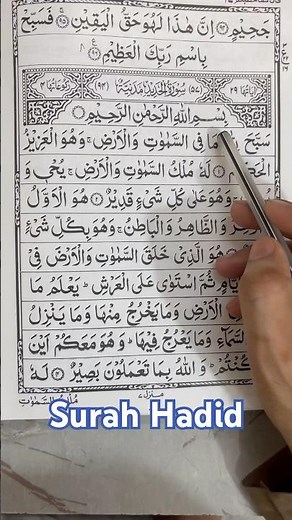 جَحِيْمٍ ۝ اِنَّ هٰذَا لَهُوَ حَقُّ الْيَقِيْنِ ۝ فَسَبِّحْ
بِاسْمِ رَبِّكَ الْعَظِيْمِ ۝
اٰيَاتُهَا ٢٩ (٥٧) سُوْرَةُ الْحَدِيْدِ مَدَنِيَّةٌ (٩٤) رُكُوْعَاتُهَا ٤
بِسْمِ اللهِ الرَّحْمٰنِ الرَّحِيْمِ
سَبَّحَ مَا فِى السَّمٰوٰتِ وَالْاَرْضِ ۚ وَهُوَ الْعَزِيْزُ
۝ لَهٗ مُلْكُ السَّمٰوٰتِ وَالْاَرْضِ ۚ يُحْيٖ وَ
وَهُوَ عَلٰى كُلِّ شَيْءٍ قَدِيْرٌ ۝ هُوَ الْاَوَّلُ
وَالظَّاهِرُ وَالْبَاطِنُ ۚ وَهُوَ بِكُلِّ شَيْءٍ
هُوَ الَّذِيْ خَلَقَ السَّمٰوٰتِ وَالْاَرْضَ فِيْ
ثُمَّ اسْتَوٰى عَلَى الْعَرْشِ ۚ يَعْلَمُ مَا
الْاَرْضِ وَمَا يَخْرُجُ مِنْهَا وَمَا يَنْزِلُ
السَّمَآءِ وَمَا يَعْرُجُ فِيْهَا ۚ وَهُوَ مَعَكُمْ اَيْنَ
كُنْتُمْ ۚ وَاللهُ بِمَا تَعْمَلُوْنَ بَصِيْرٌ ۝ لَهٗ
Surah Hadid
منزل ٧